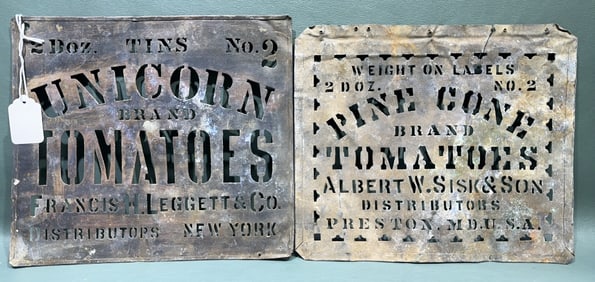 2 DOZ. TINS NO. 2
UNICORN
BRAND
TOMATOES
FRANCIS H. LEGGETT & CO.
DISTRIBUTORS NEW YORK
WEIGHT ON LABELS
2 DOZ. NO. 2
PINE CONE
BRAND
TOMATOES
ALBERT W. SISK & SON
DISTRIBUTORS
PRESTON, MD. U.S.A.